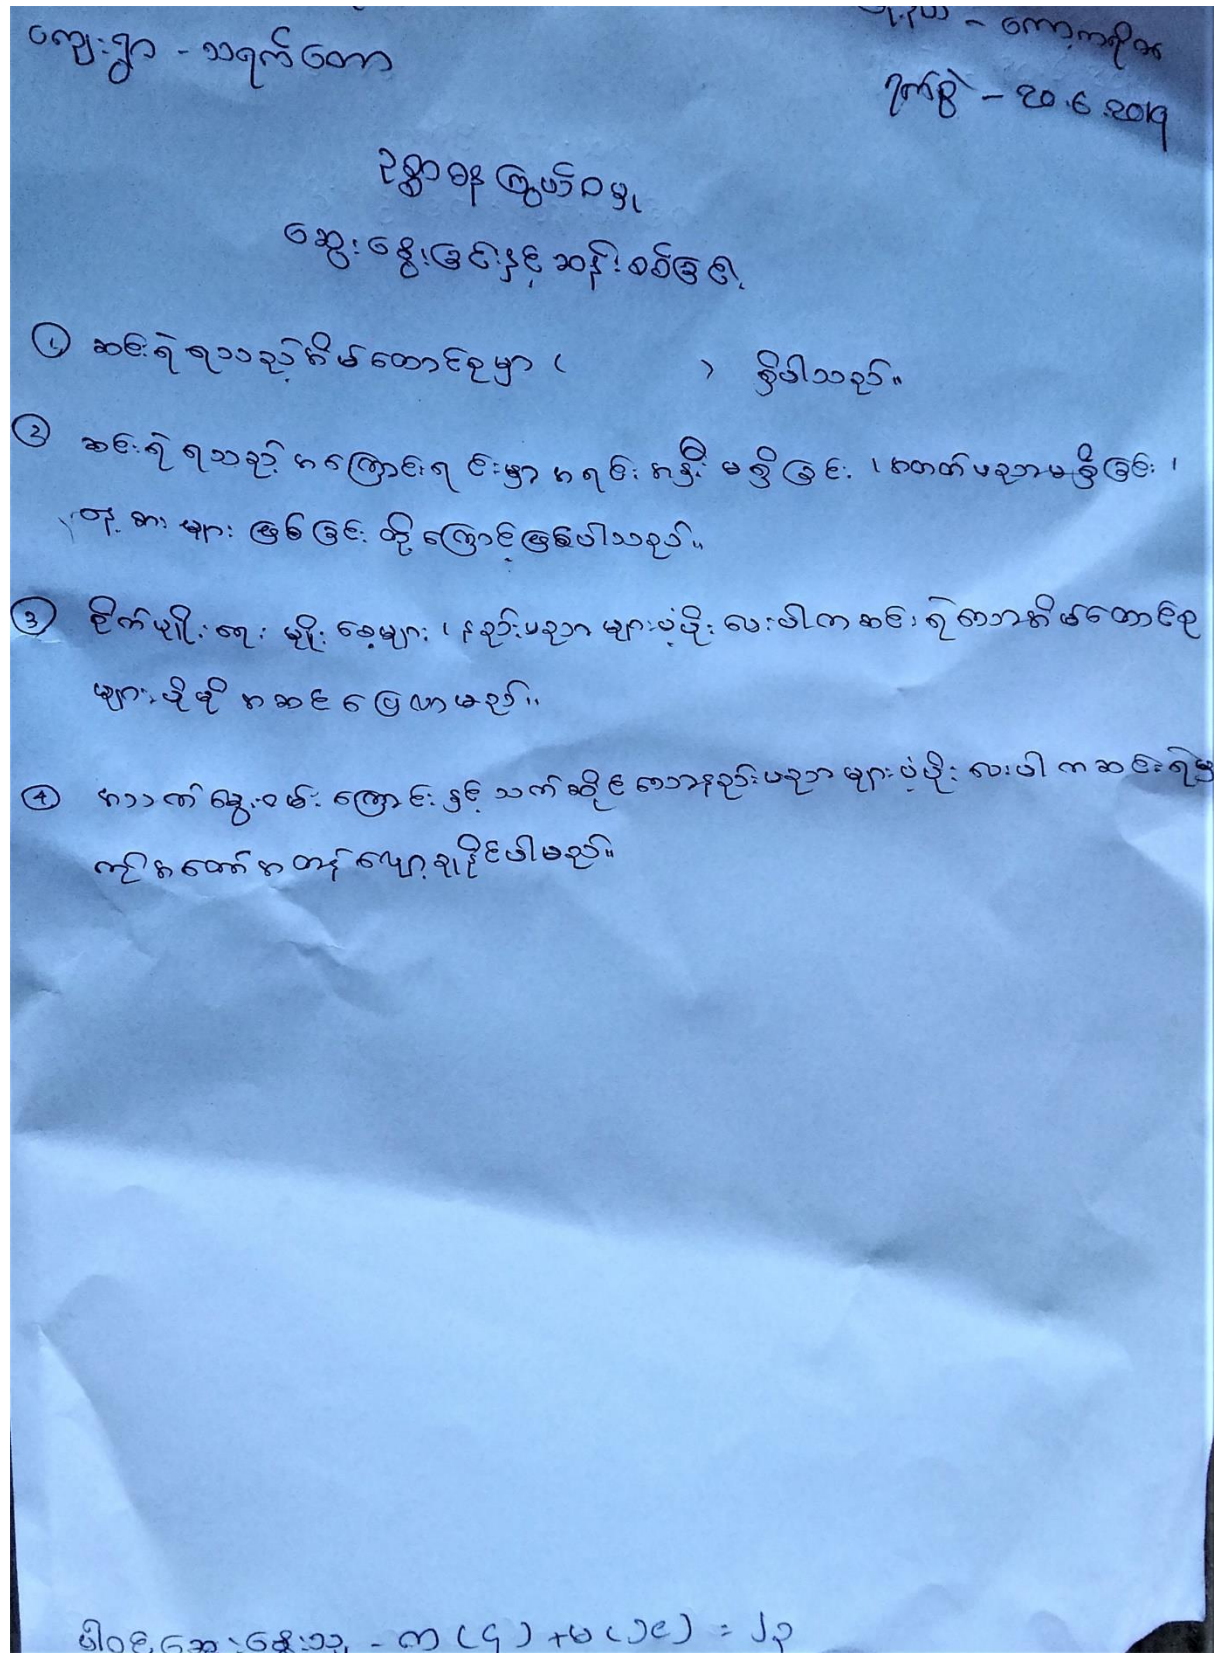 ကျေးရွာ - သရက်တော
မြို့နယ် - ကော့ကရိတ်
ရက်စွဲ - 20.6.2019
ဥစ္စာဓန ကြွယ်ဝမှု
ဆွေးနွေးခြင်းနှင့် ဆန်းစစ်ခြင်း
① ဆင်းရဲ ရသည့်အိမ်ထောင်စုမှာ ( ) ရှိပါသည်။
② ဆင်းရဲ ရသည့် အကြောင်းရင်းမှာ အရင်းအနှီး မရှိခြင်း ၊ အတတ်ပညာမရှိခြင်း ၊
များ ဖြစ်ခြင်း တို့ကြောင့်ဖြစ်ပါသည်။
③ စိုက်ပျိုးရေး မျိုးစေ့များ ၊ နည်းပညာ များပံ့ပိုး ပေးပါက ဆင်းရဲသောအိမ်ထောင်စု
များ ပိုမို အဆင်ပြေလာမည်။
④ အသက်မွေးဝမ်းကြောင်း နှင့် သက်ဆိုင်သောနည်းပညာ များပံ့ပိုး ပေးပါ က ဆင်းရဲမှု
ကို အတော်အတန် လျော့ချနိုင်ပါမည်။
ပါဝင်ဆွေးနွေးသူ - က (၄) + မ (၁၉) = ၂၃